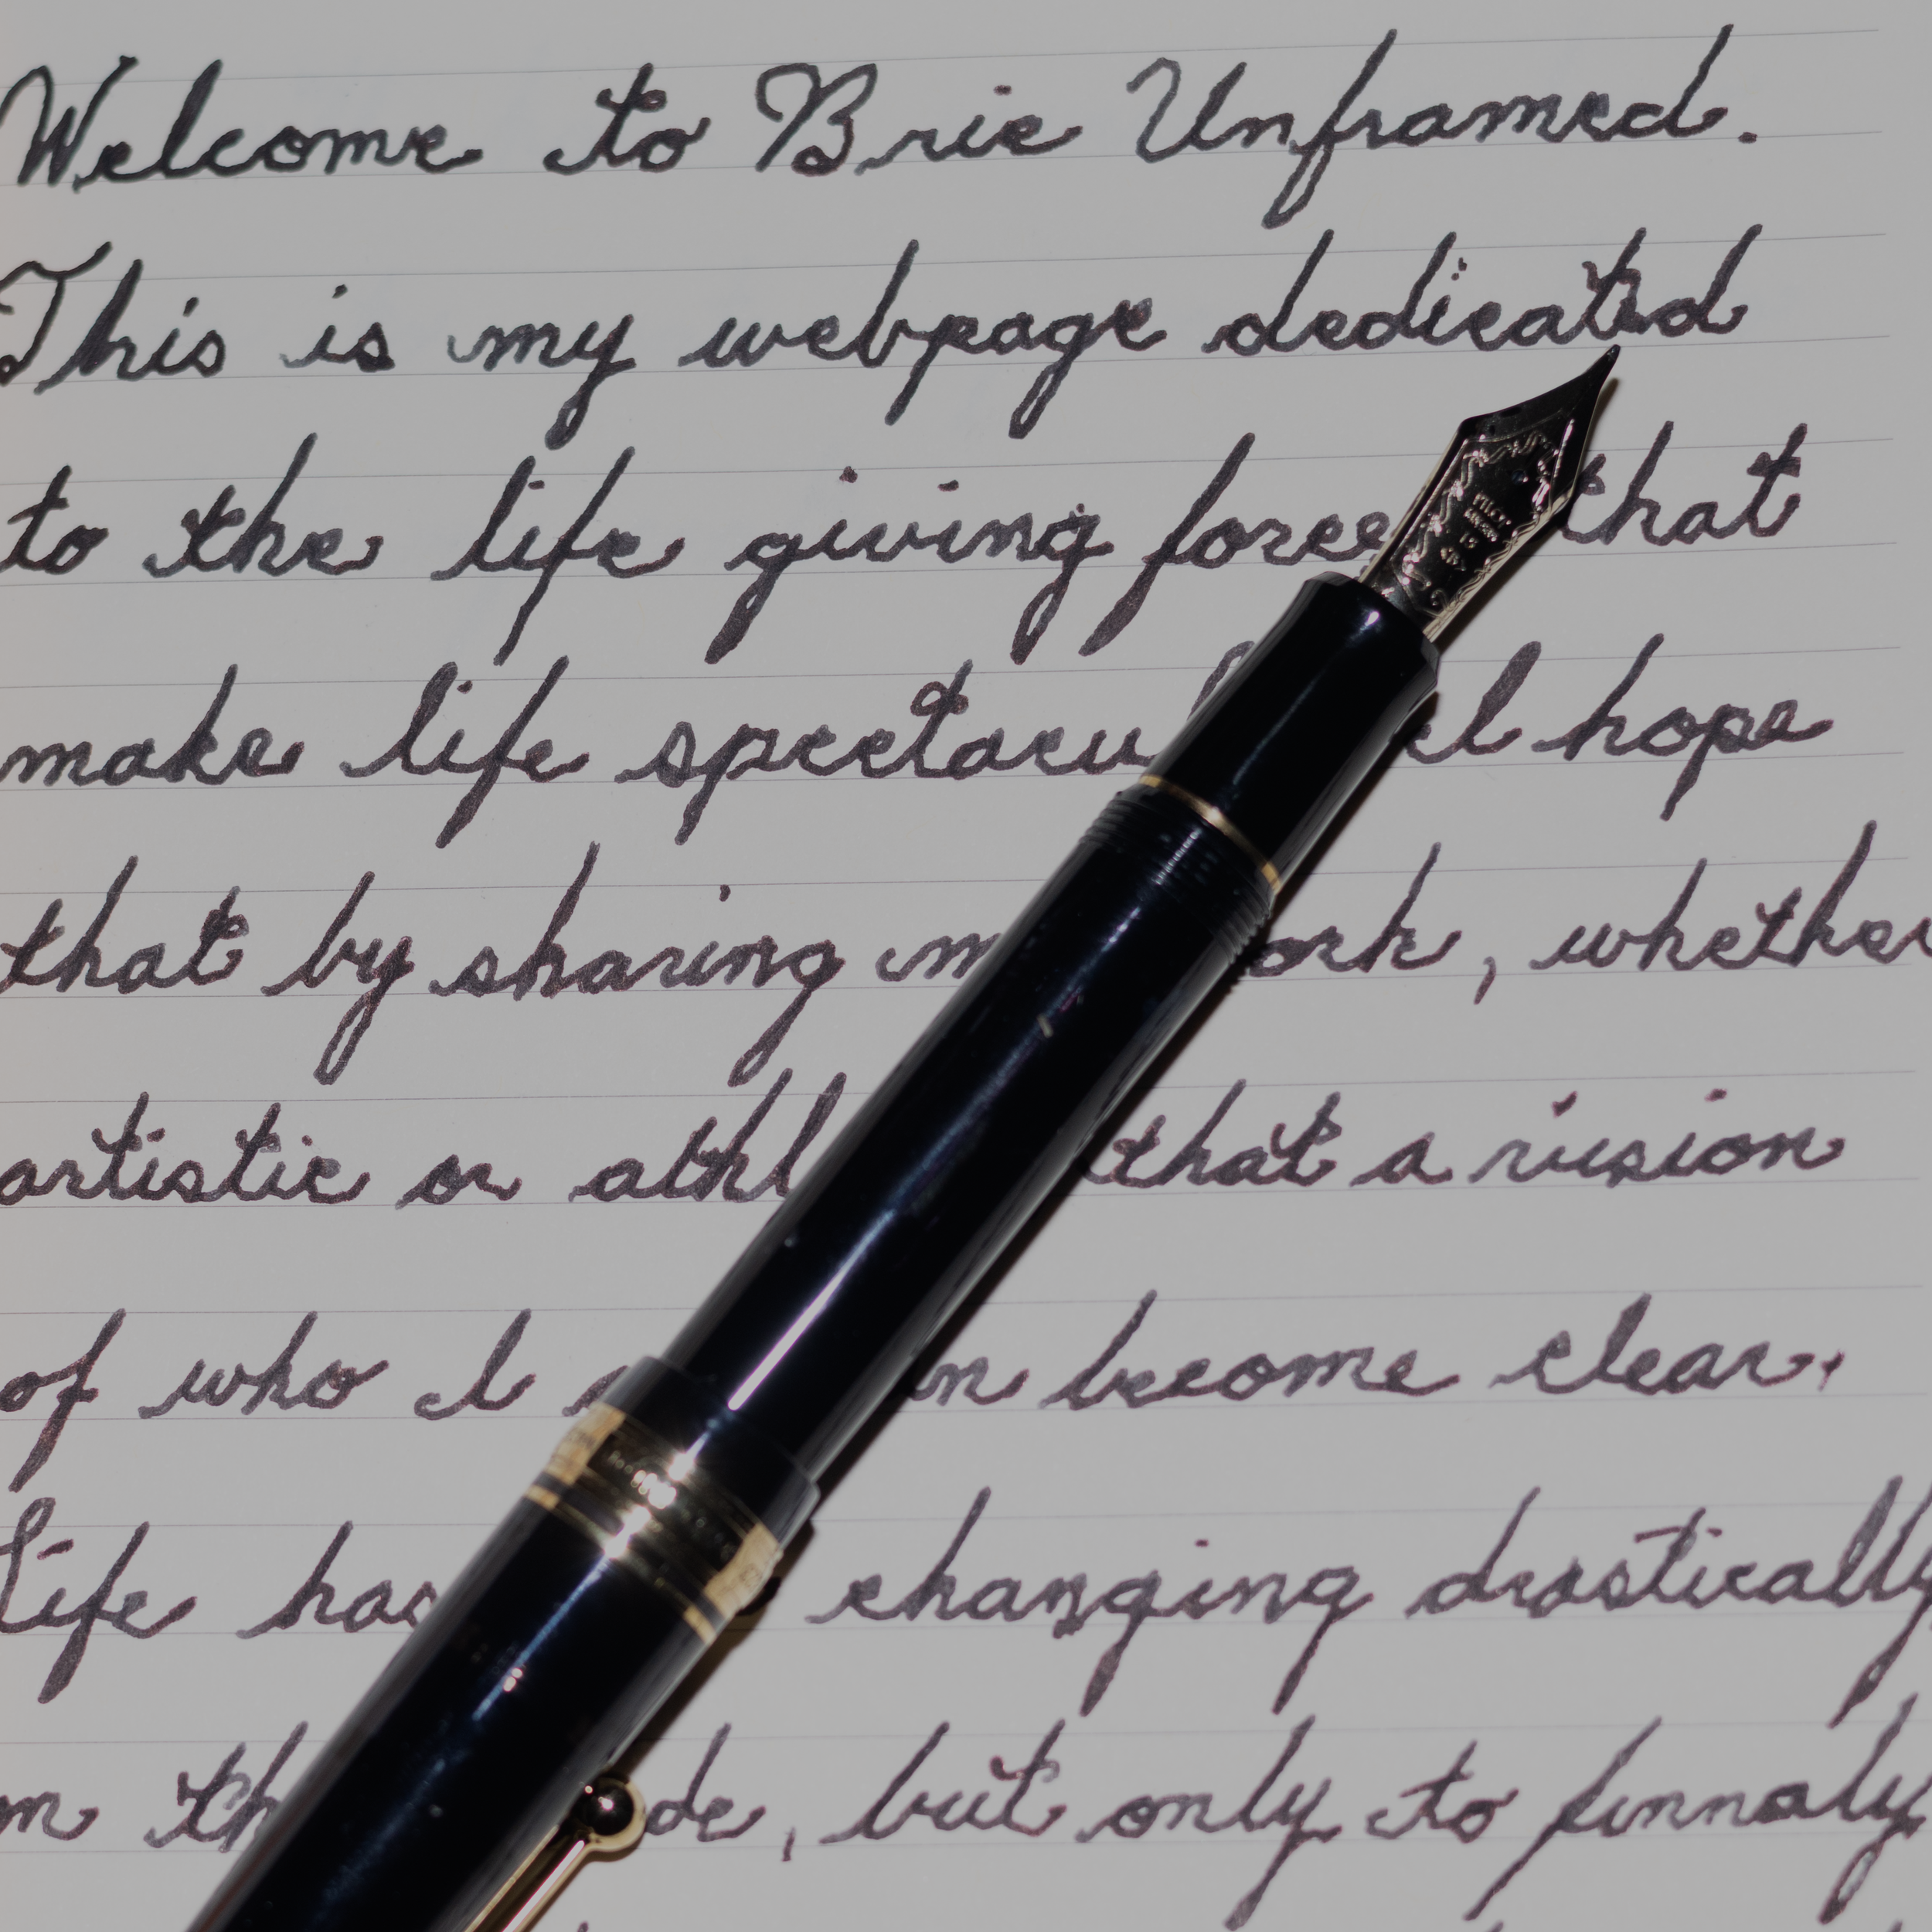 Welcome to Brie Unframed.
This is my webpage dedicated
to the life giving forces that
make life spectacu I hope
that by sharing m ork, whether
artistic or athl that a vision
of who I n become clear.
Life has changing drastically
on th de, but only to finnaly